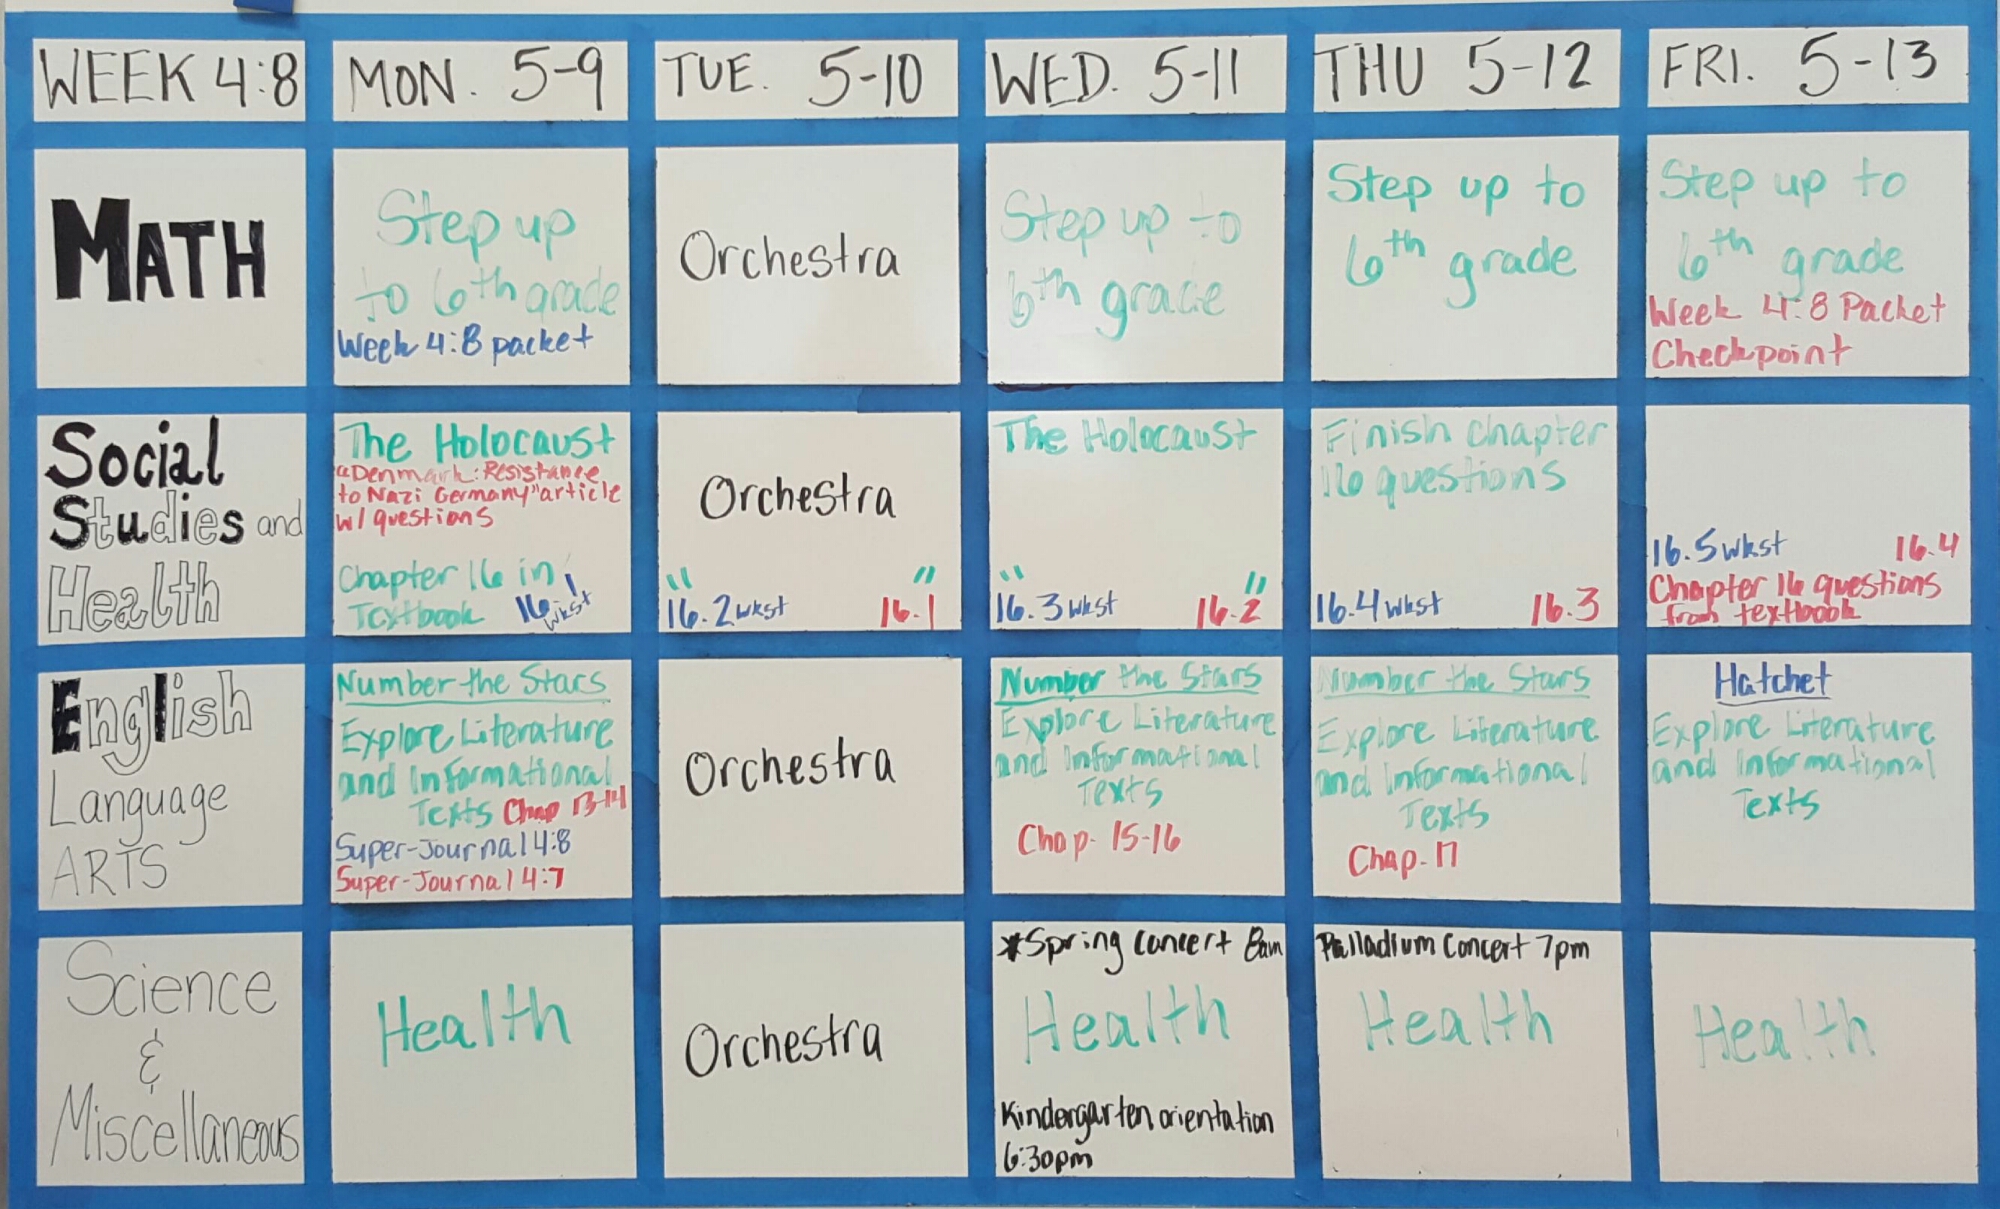 WEEK 4:8
MON. 5-9
TUE. 5-10
WED. 5-11
THU 5-12
FRI. 5-13
MATH
Step up
to 6th grade
Week 4:8 packet
Orchestra
Step up to
6th grade
Step up to
6th grade
Step up to
6th grade
Week 4:8 Packet
Checkpoint
Social
Studies and
Health
The Holocaust
"Denmark: Resistance
to Nazi Germany" article
w/ questions
Chapter 16 in
Textbook 16.1
wkst
Orchestra
" "
16.2 wkst 16.1
The Holocaust
" "
16.3 wkst 16.2
Finish chapter
16 questions
16.4 wkst 16.3
16.5 wkst 16.4
Chapter 16 questions
from textbook
English
Language
ARTS
Number the Stars
Explore Literature
and Informational
Texts Chap 13-14
Super-Journal 4:8
Super-Journal 4:7
Orchestra
Number the Stars
Explore Literature
and Informational
Texts
Chap. 15-16
Number the Stars
Explore Literature
and Informational
Texts
Chap. 17
Hatchet
Explore Literature
and Informational
Texts
Science
&
Miscellaneous
Health
Orchestra
*Spring concert 8am
Health
Kindergarten orientation
6:30pm
Palladium Concert 7pm
Health
Health